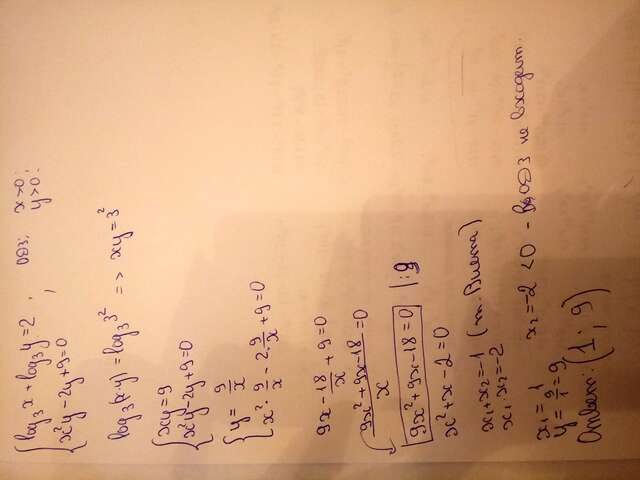 { log₃x + log₃y = 2 ; ОДЗ: x>0;
{ x²y - 2y + 9 = 0 ; y>0;
log₃(xy) = log₃3² => xy = 3²
{ xy = 9
{ x²y - 2y + 9 = 0
{ y = 9/x
{ x² · 9/x - 2 · 9/x + 9 = 0
9x - 18/x + 9 = 0
(9x² + 9x - 18)/x = 0
9x² + 9x - 18 = 0 |:9
x² + x - 2 = 0
x₁ + x₂ = -1 (т. Виета)
x₁ · x₂ = -2
x₁ = 1 x₂ = -2 < 0 - в ОДЗ не входит.
y = 9/1 = 9
Ответ: (1; 9)